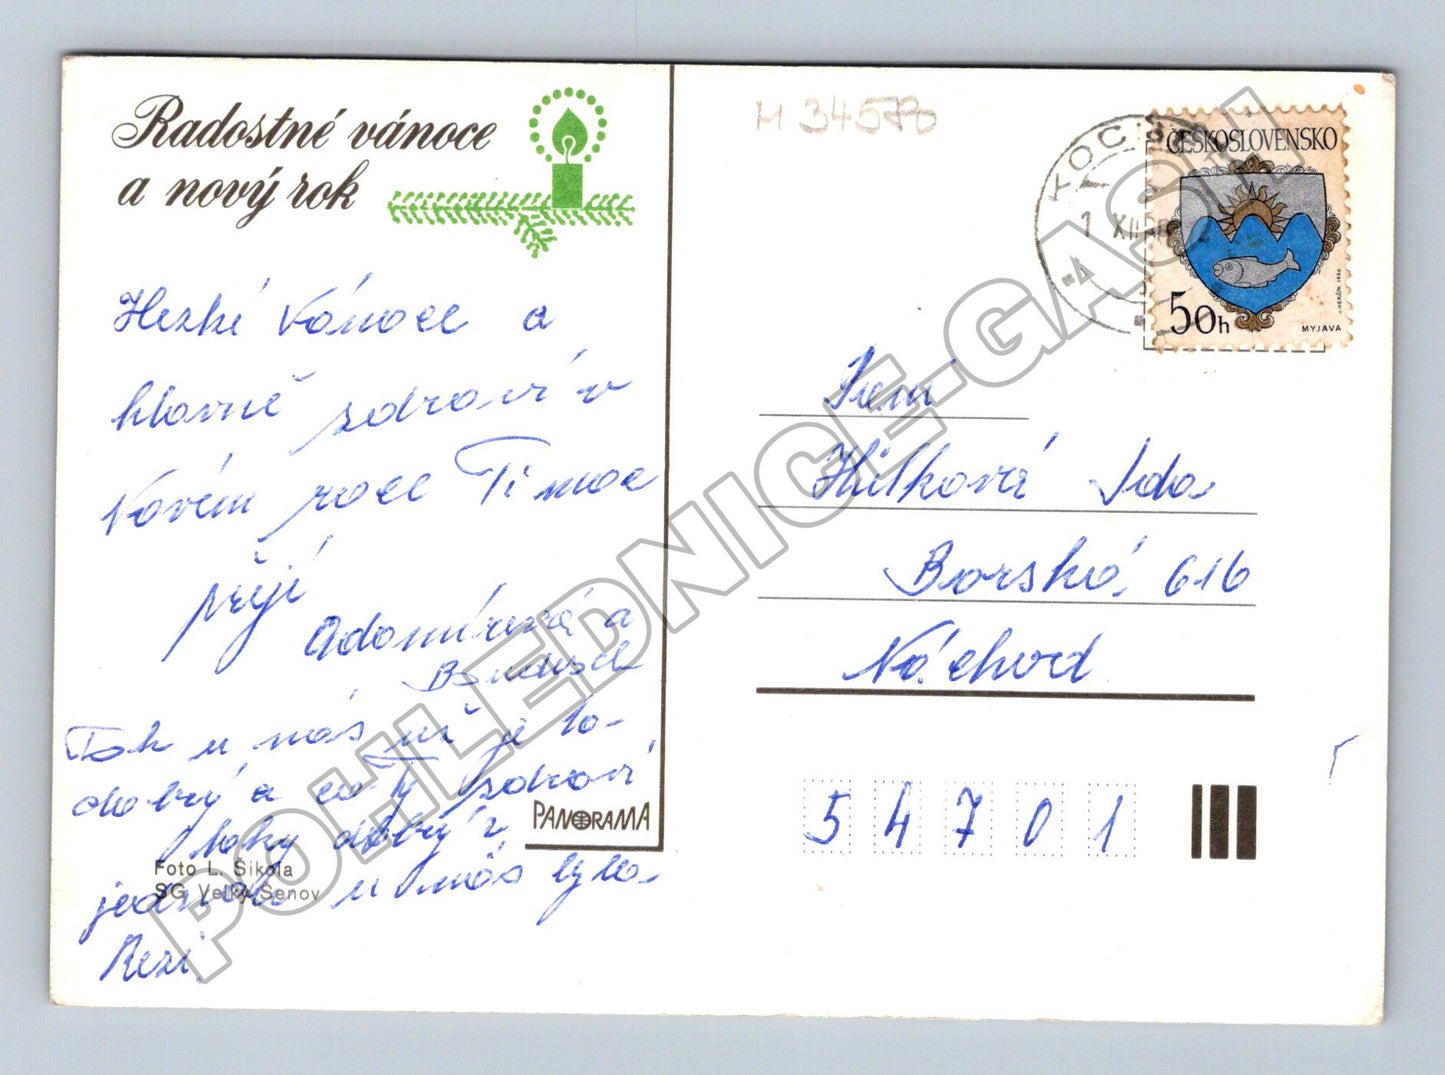 Radostné vánoce
a nový rok
Hezké Vánoce a
hlavně zdraví v
Novém roce Ti moc
přejí
Adamírová a
Tak u nás už je to-
dobrý a co Ty zdraví
taky dobrý z
jednou u nás byla
Rezi.
PANORAMA
Foto L. Šikola
SG Velký Šenov
M 34570
ČESKOSLOVENSKO
50h
MYJAVA
J. HERČÍK 1986
XII
Paní
Hitková Ida
Borská 616
Náchod
54701
POHLEDNICE-GASH